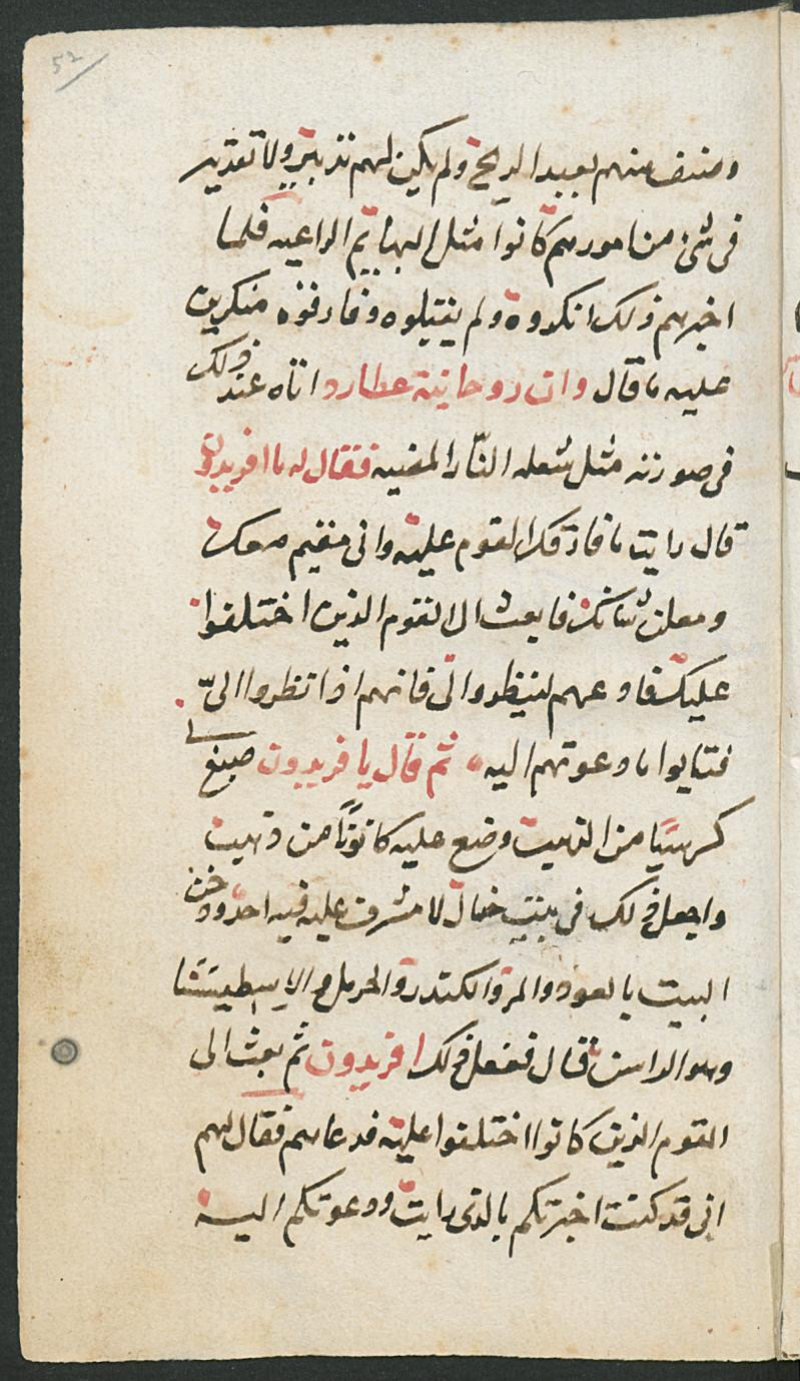 52
وصنف منهم يعبد الريح ولم يكن لهم تدبير ولا تقدير
فى شئ من امورهم كانوا مثل البهايم الراعيه فلما
اخبرهم ذلك انكروه ولم يقبلوه وفارقوه منكرين
عليه ما قال وان روحانية عطارد اتاه عند ذلك
فى صورته مثل شعله النار المضيه فقال له يا افريدون
قال رايت ما فارقك القوم عليه وانى مقيم معك
ومعلن شانك فابعث الى القوم الذين اختلفوا
عليك فادعهم لينظروا الى فانهم اذا نظروا الىّ
فتابوا ما دعوتهم اليه ثم قال يا فريدون صبغ لى
كرسيا من الذهب وضع عليه كانونًا من ذهب
واجعل ذلك فى بيت خال لا مشرف عليه فيه احد ودخن
البيت بالعود والمر والكندر والحرمل و
وهو الراسن قال ففعل ذلك افريدون ثم بعث الى
القوم الذين كانوا اختلفوا عليه فدعاهم فقال لهم
انى قد كنت اخبرتكم بالذى رايت ودعوتكم اليه